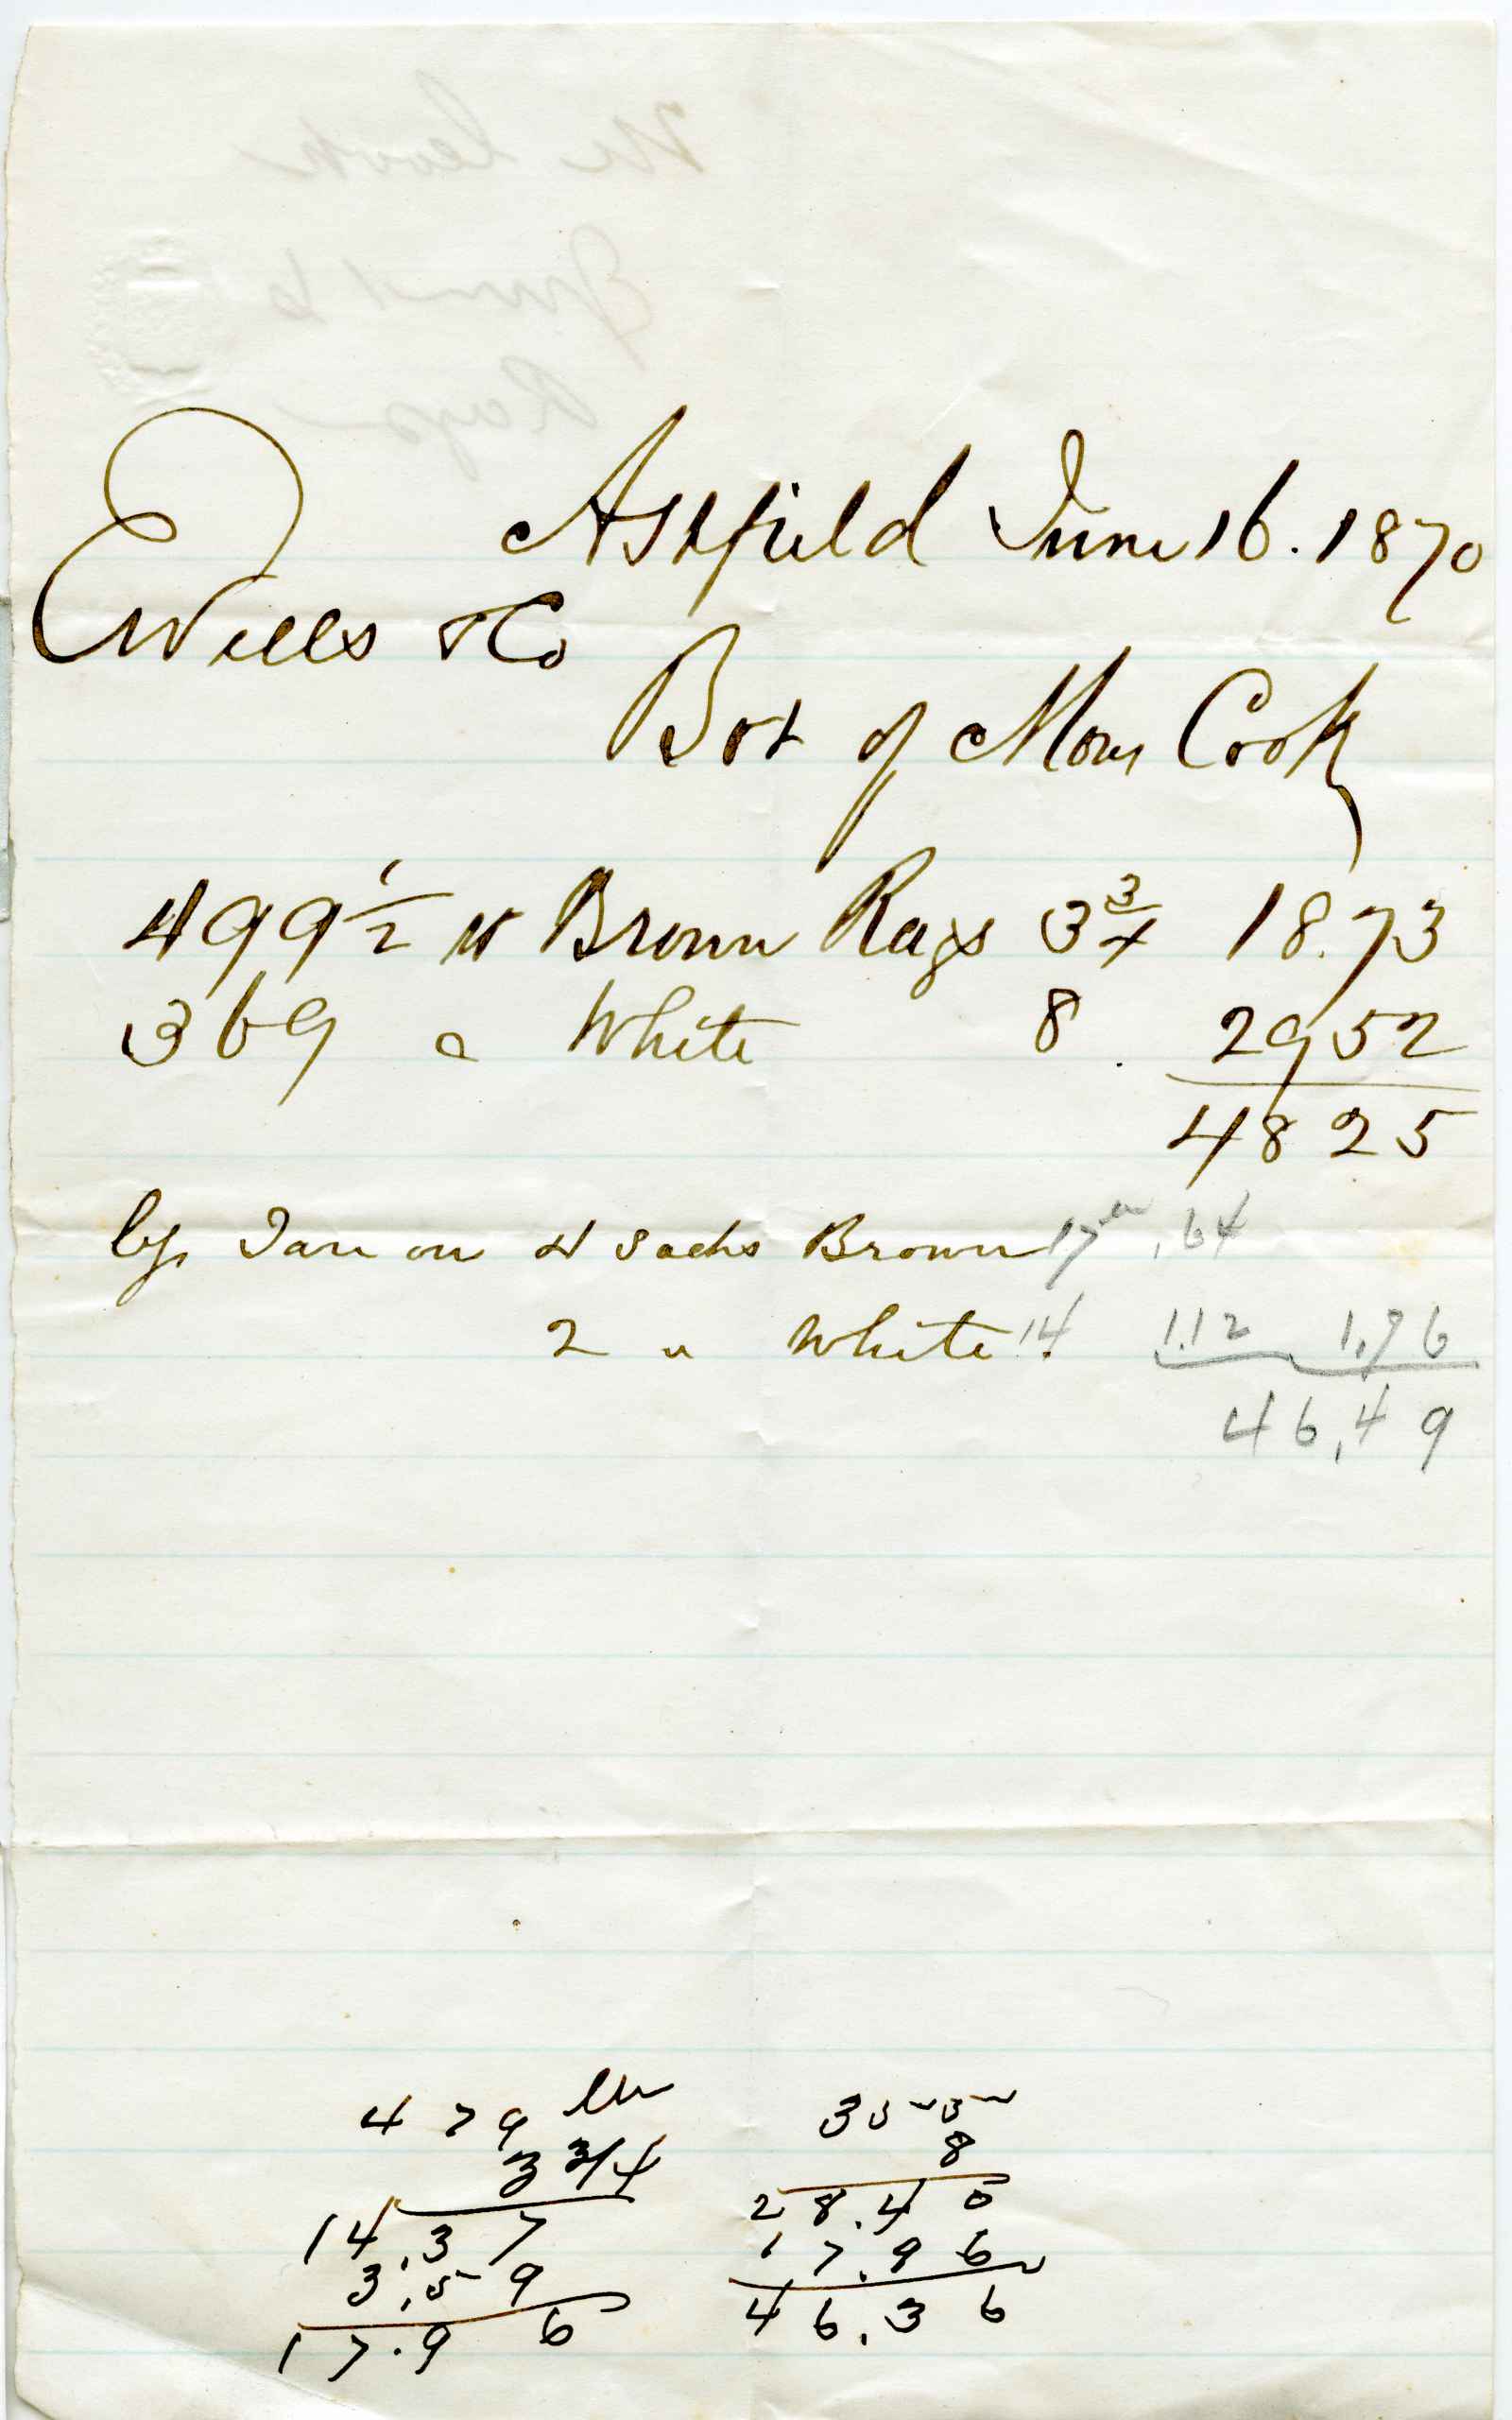 Ashfield June 16. 1870
Wells & Co
Bot of Moses Cook
499 1/2 lb Brown Rags 3 3/4 18.73
369 " White 8 2952
4825
Tare on 4 Sacks Brown 17 .64
2 " White 14 1.12 1.76
46.49
479 lbs
3 3/4
14.37
3.59
17.96
355
8
28.40
17.96
46.36